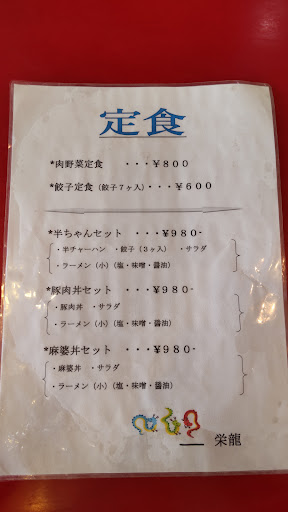 定食
*肉野菜定食 ・・・¥800
*餃子定食（餃子７ヶ入）・・・¥600
*半ちゃんセット ・・・¥980-
・半チャーハン ・餃子（３ヶ入） ・サラダ
・ラーメン（小）（塩・味噌・醤油）
*豚肉丼セット ・・・¥980-
・豚肉丼 ・サラダ
・ラーメン（小）（塩・味噌・醤油）
*麻婆丼セット ・・・¥980-
・麻婆丼 ・サラダ
・ラーメン（小）（塩・味噌・醤油）
栄龍